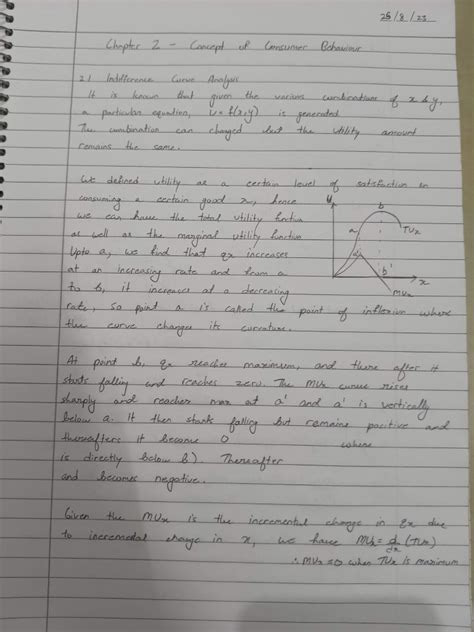 25/8/23
Chapter 2 - Concept of Consumer Behaviour
2.1 Indifference Curve Analysis
It is known that given the various combinations of x & y,
a particular equation, U = f(x,y) is generated
The combination can changed but the utility amount
remains the same.
We defined utility as a certain level of satisfaction on
consuming a certain good x, hence
we can have the total utility function
as well as the marginal utility function
Upto a, we find that qx increases
at an increasing rate and from a
to b, it increases at a decreasing
rate, so point a is called the point of inflexion where
the curve changes its curvature.
U
b
a
TUx
a'
b'
x
MUx
At point b, qx reaches maximum, and there after it
starts falling and reaches zero. The MUx curve rises
sharply and reaches max at a' and a' is vertically
below a. It then starts falling but remains positive and
thereafter it become 0 where
is directly below b). Thereafter
and becomes negative.
Given the MUx is the incremental change in qx due
to incremental change in x, we have MUx = d/dx (TUx)
∴ MUx = 0 when TUx is maximum